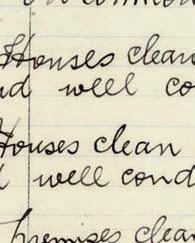 Houses clean
nd well co
Houses clean
d well cond
Premises clean